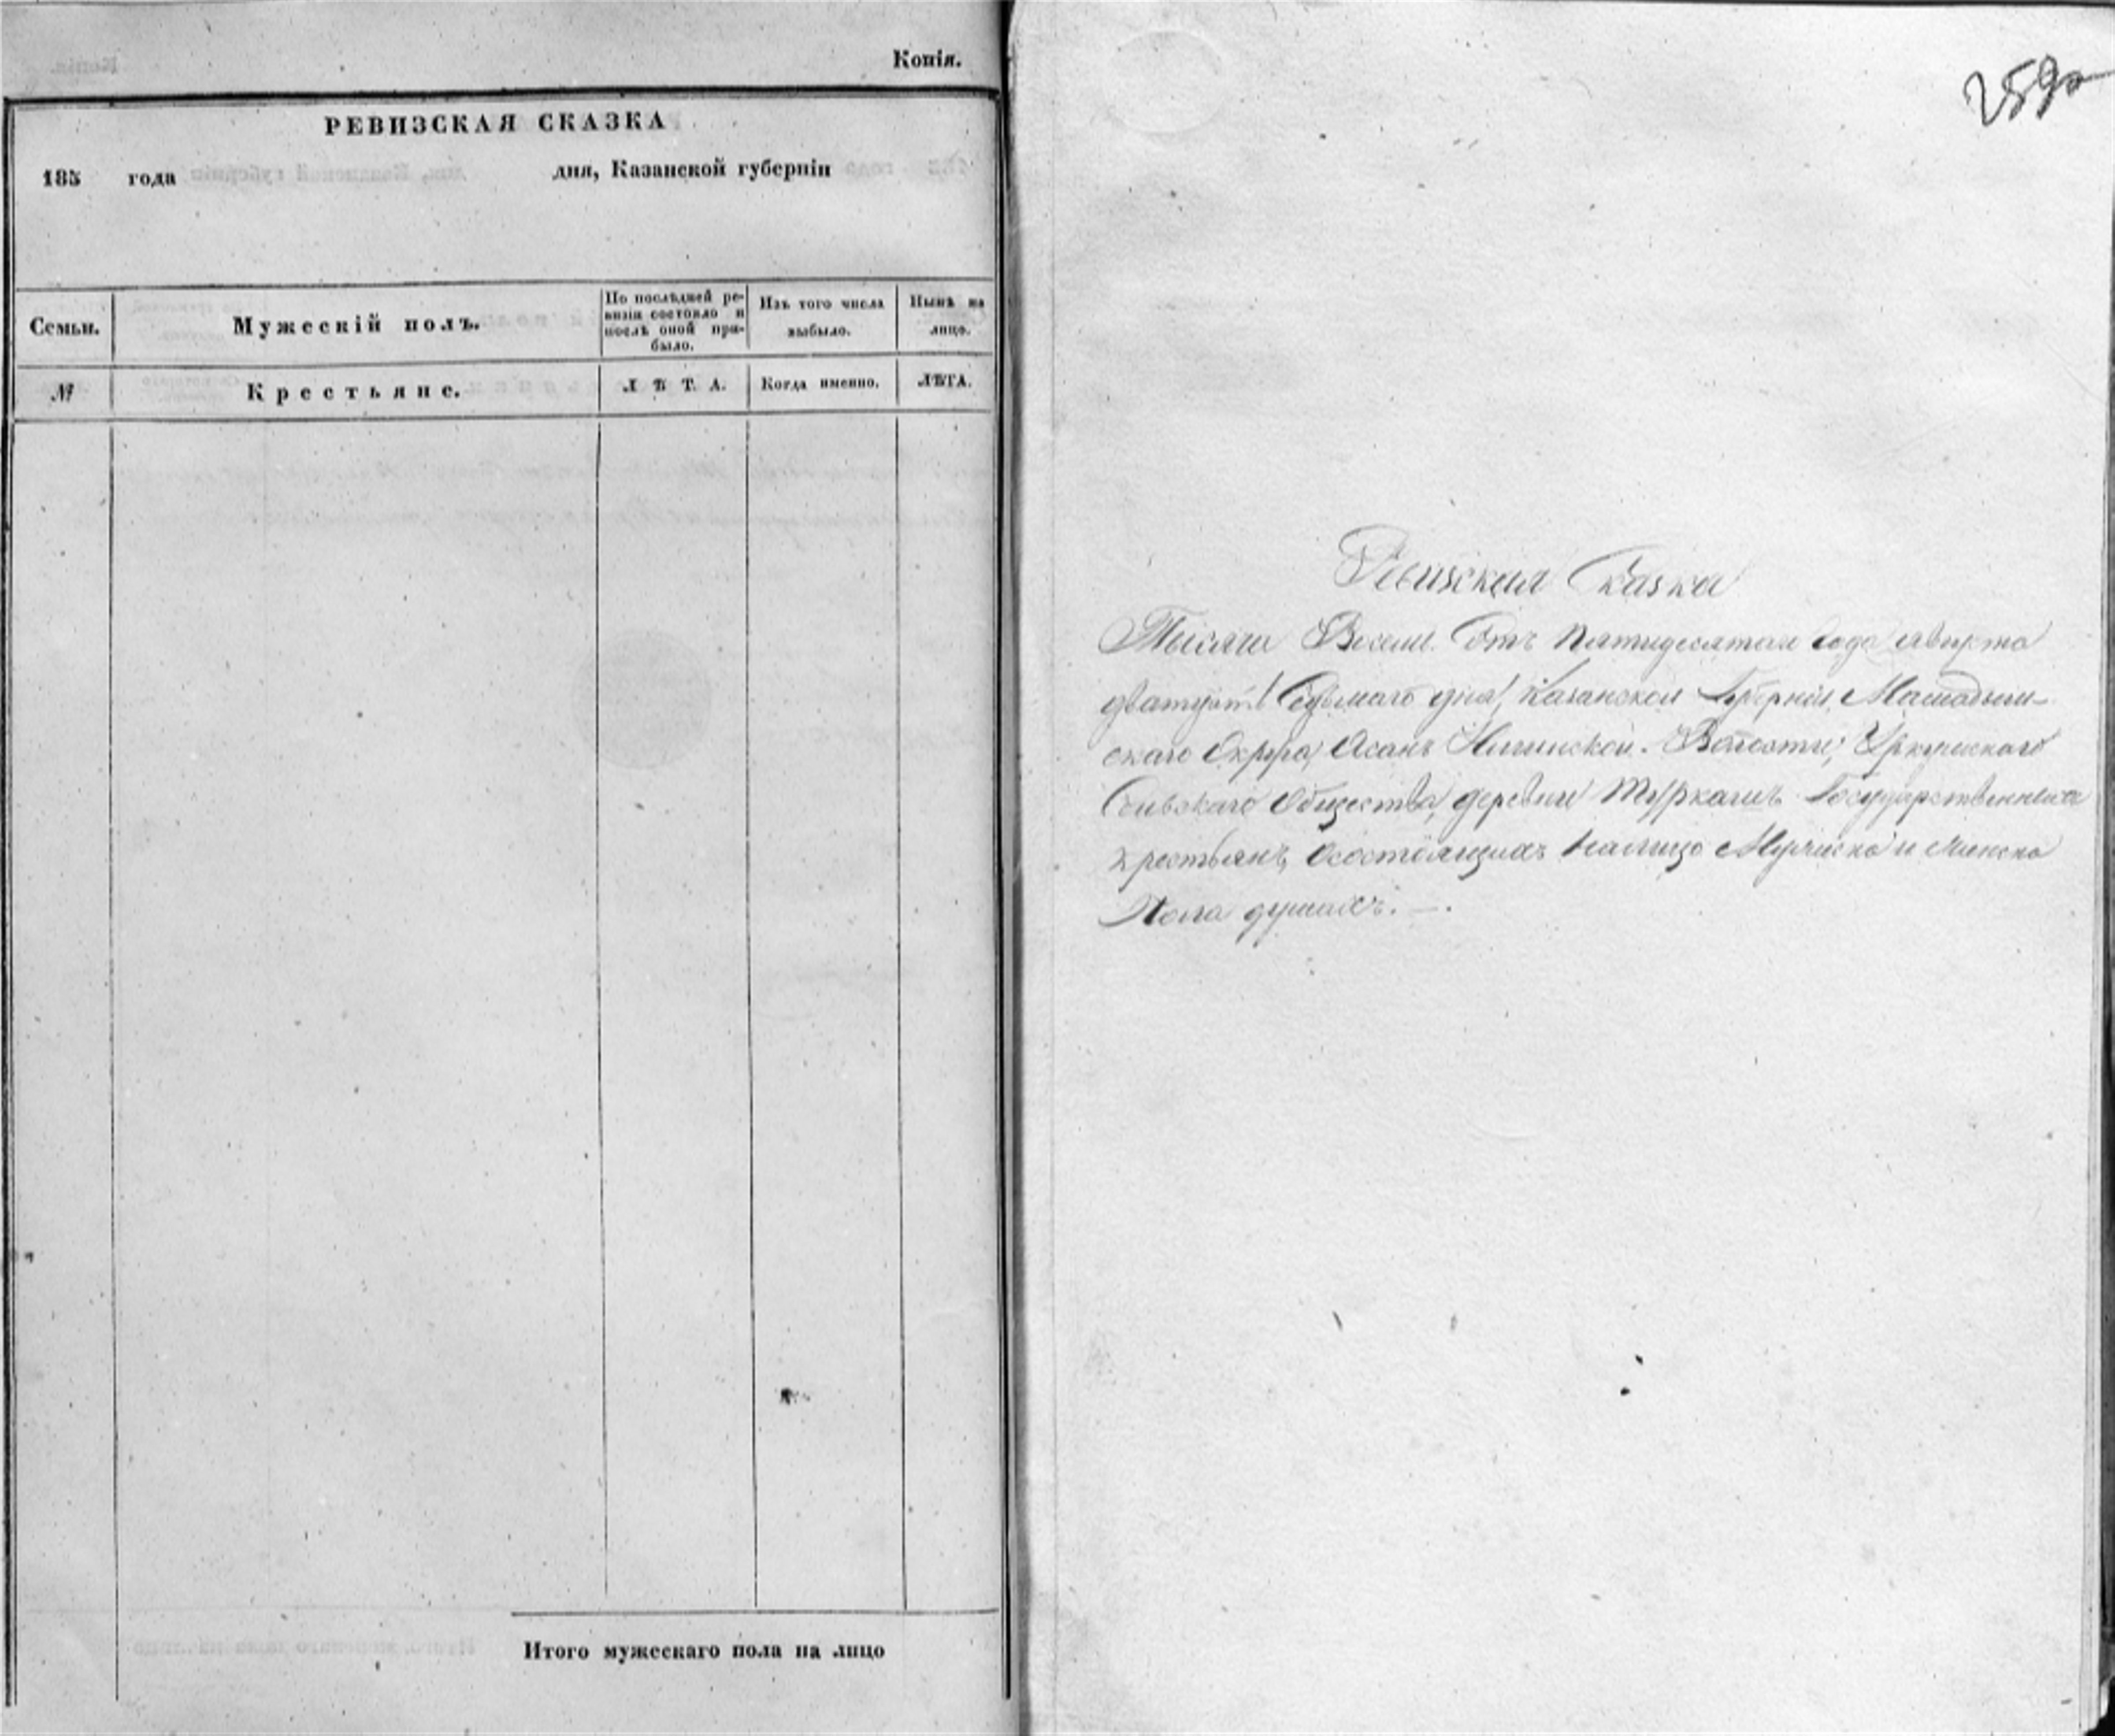 Копія.
РЕВИЗСКАЯ СКАЗКА
185 года дня, Казанской губерніи
Семьи.
Мужескій полъ.
По послѣдней ре-
визіи состояло и
послѣ оной при-
было.
Изъ того числа
выбыло.
Нынѣ на
лицо.
№
Крестьяне.
ЛѢТА.
Когда именно.
ЛѢТА.
Итого мужескаго пола на лицо
259
Ревизская Сказка
Тысяча Восем. Сотъ Пятидесятаго Года Августа
дватцать Седьмаго дня, Казанской Губерніи, Мамадыш-
скаго Округа, Асанъ Волости,
Сельскаго Общества, деревни Государственныхъ
крестьянъ, Осостоящихъ налицо Мужеска и женска
Пола душахъ. —.